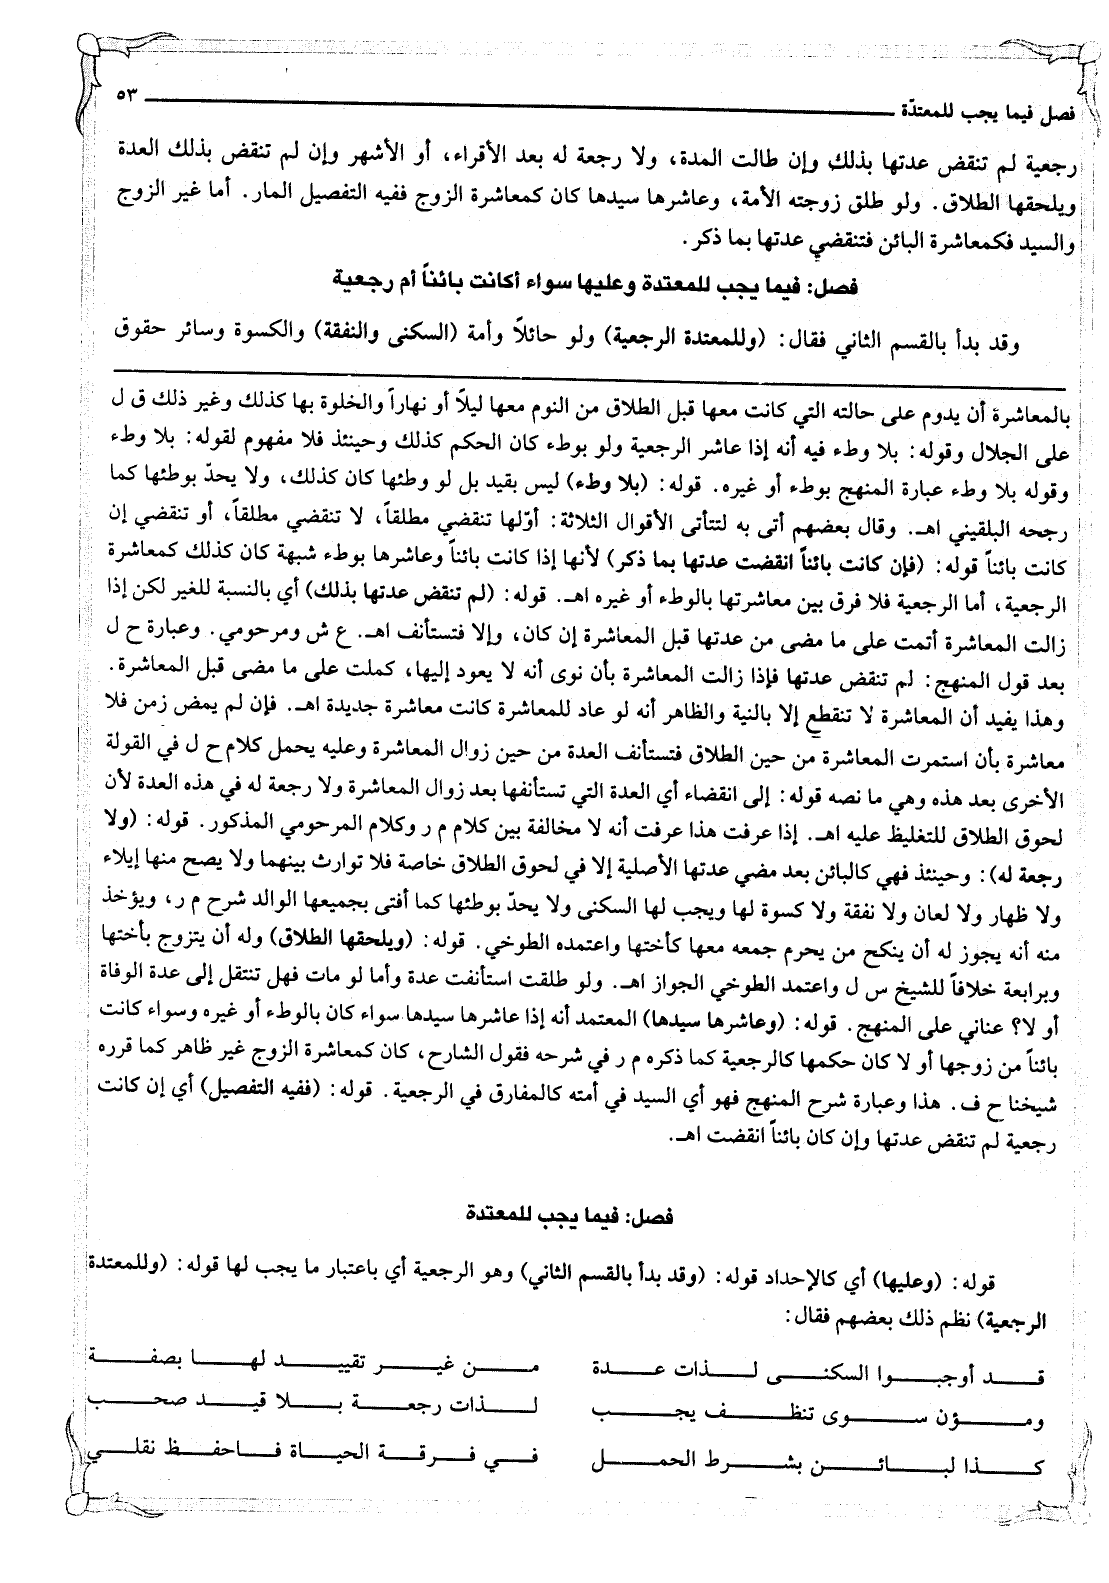 فصل فيما يجب للمعتدّة ٥٣
رجعية لم تنقض عدتها بذلك وإن طالت المدة، ولا رجعة له بعد الأقراء، أو الأشهر وإن لم تنقض بذلك العدة
ويلحقها الطلاق. ولو طلق زوجته الأمة، وعاشرها سيدها كان كمعاشرة الزوج ففيه التفصيل المار. أما غير الزوج
والسيد فكمعاشرة البائن فتنقضي عدتها بما ذكر.
فصل: فيما يجب للمعتدة وعليها سواء أكانت بائناً أم رجعية
وقد بدأ بالقسم الثاني فقال: (وللمعتدة الرجعية) ولو حائلاً وأمة (السكنى والنفقة) والكسوة وسائر حقوق
بالمعاشرة أن يدوم على حالته التي كانت معها قبل الطلاق من النوم معها ليلاً أو نهاراً والخلوة بها كذلك وغير ذلك ق ل
على الجلال وقوله: بلا وطء فيه أنه إذا عاشر الرجعية ولو بوطء كان الحكم كذلك وحينئذ فلا مفهوم لقوله: بلا وطء
وقوله بلا وطء عبارة المنهج بوطء أو غيره. قوله: (بلا وطء) ليس بقيد بل لو وطئها كان كذلك، ولا يحدّ بوطئها كما
رجحه البلقيني اهـ. وقال بعضهم أتى به لتتأتى الأقوال الثلاثة: أوّلها تنقضي مطلقاً، لا تنقضي مطلقاً، أو تنقضي إن
كانت بائناً قوله: (فإن كانت بائناً انقضت عدتها بما ذكر) لأنها إذا كانت بائناً وعاشرها بوطء شبهة كان كذلك كمعاشرة
الرجعية، أما الرجعية فلا فرق بين معاشرتها بالوطء أو غيره اهـ. قوله: (لم تنقض عدتها بذلك) أي بالنسبة للغير لكن إذا
زالت المعاشرة أتمت على ما مضى من عدتها قبل المعاشرة إن كان، وإلا فتستأنف اهـ. ع ش ومرحومي. وعبارة ح ل
بعد قول المنهج: لم تنقض عدتها فإذا زالت المعاشرة بأن نوى أنه لا يعود إليها، كملت على ما مضى قبل المعاشرة.
وهذا يفيد أن المعاشرة لا تنقطع إلا بالنية والظاهر أنه لو عاد للمعاشرة كانت معاشرة جديدة اهـ. فإن لم يمض زمن فلا
معاشرة بأن استمرت المعاشرة من حين الطلاق فتستأنف العدة من حين زوال المعاشرة وعليه يحمل كلام ح ل في القولة
الأخرى بعد هذه وهي ما نصه قوله: إلى انقضاء أي العدة التي تستأنفها بعد زوال المعاشرة ولا رجعة له في هذه العدة لأن
لحوق الطلاق للتغليظ عليه اهـ. إذا عرفت هذا عرفت أنه لا مخالفة بين كلام م ر وكلام المرحومي المذكور. قوله: (ولا
رجعة له): وحينئذ فهي كالبائن بعد مضي عدتها الأصلية إلا في لحوق الطلاق خاصة فلا توارث بينهما ولا يصح منها إيلاء
ولا ظهار ولا لعان ولا نفقة ولا كسوة لها ويجب لها السكنى ولا يحدّ بوطئها كما أفتى بجميعها الوالد شرح م ر، ويؤخذ
منه أنه يجوز له أن ينكح من يحرم جمعه معها كأختها واعتمده الطوخي. قوله: (ويلحقها الطلاق) وله أن يتزوج بأختها
وبرابعة خلافاً للشيخ س ل واعتمد الطوخي الجواز اهـ. ولو طلقت استأنفت عدة وأما لو مات فهل تنتقل إلى عدة الوفاة
أو لا؟ عناني على المنهج. قوله: (وعاشرها سيدها) المعتمد أنه إذا عاشرها سيدها سواء كان بالوطء أو غيره وسواء كانت
بائناً من زوجها أو لا كان حكمها كالرجعية كما ذكره م ر في شرحه فقول الشارح، كان كمعاشرة الزوج غير ظاهر كما قرره
شيخنا ح ف. هذا وعبارة شرح المنهج فهو أي السيد في أمته كالمفارق في الرجعية. قوله: (ففيه التفصيل) أي إن كانت
رجعية لم تنقض عدتها وإن كان بائناً انقضت اهـ.
فصل: فيما يجب للمعتدة
قوله: (وعليها) أي كالإحداد قوله: (وقد بدأ بالقسم الثاني) وهو الرجعية أي باعتبار ما يجب لها قوله: (وللمعتدة
الرجعية) نظم ذلك بعضهم فقال:
قد أوجبوا السكنى لذات عدة من غير تقييد لها بصفة
ومؤن سوى تنظف يجب لذات رجعة بلا قيد صحب
كذا لبائن بشرط الحمل في فرقة الحياة فاحفظ نقلي